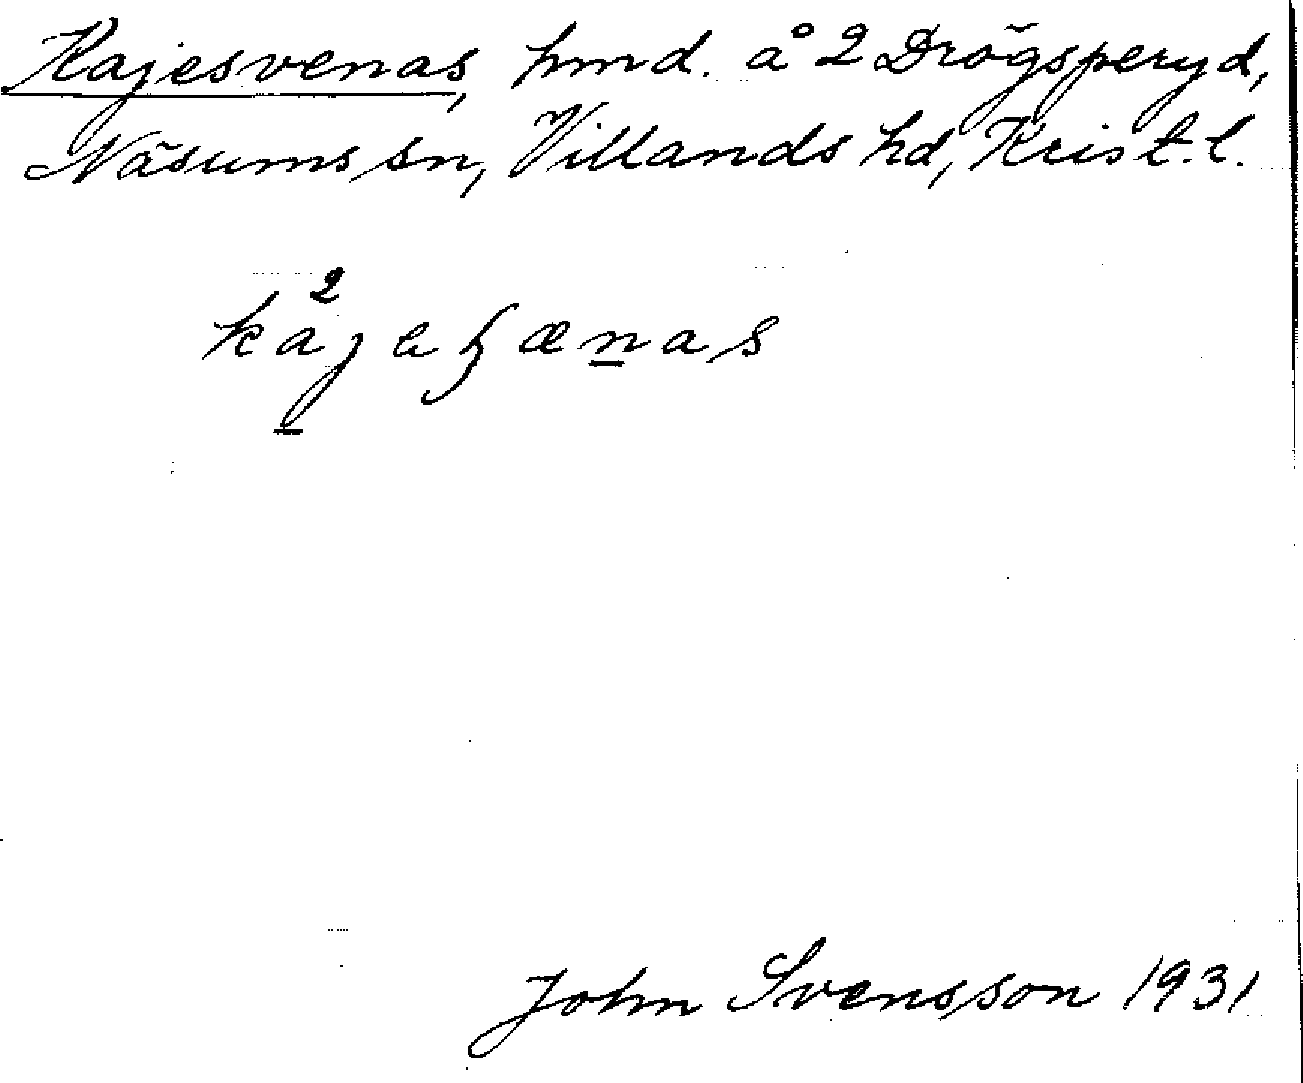 Kajesvenas, hmd. å 2 Drögsperyd,
Näsums sn, Villands hd, Krist. l.
John Svensson 1931